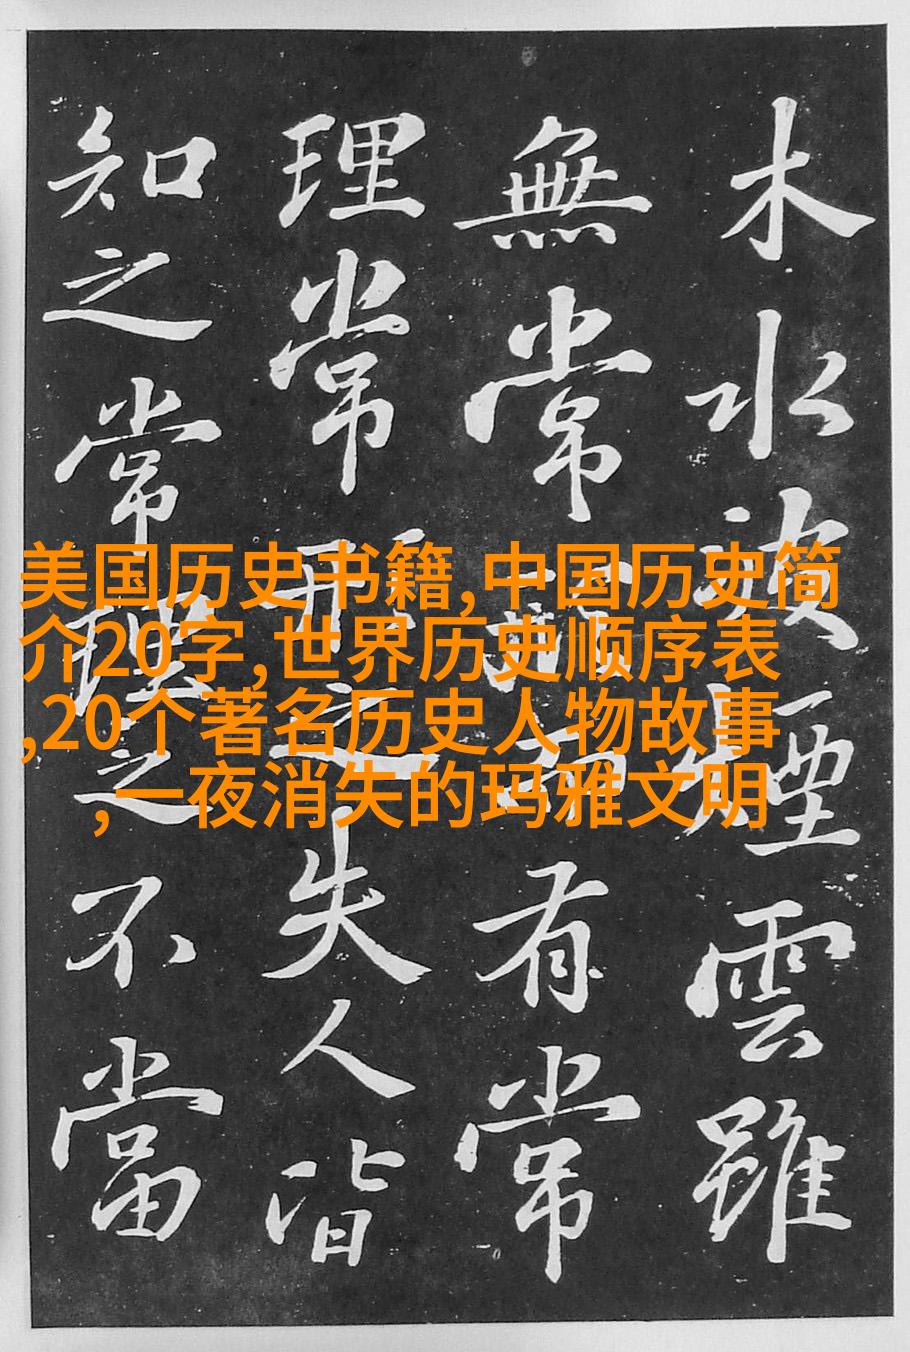 木水波煙雲雖
無常形而有常
理常形之失人皆
知之常理之不當
美国历史书籍,中国历史简
介20字,世界历史顺序表
,20个著名历史人物故事
,一夜消失的玛雅文明